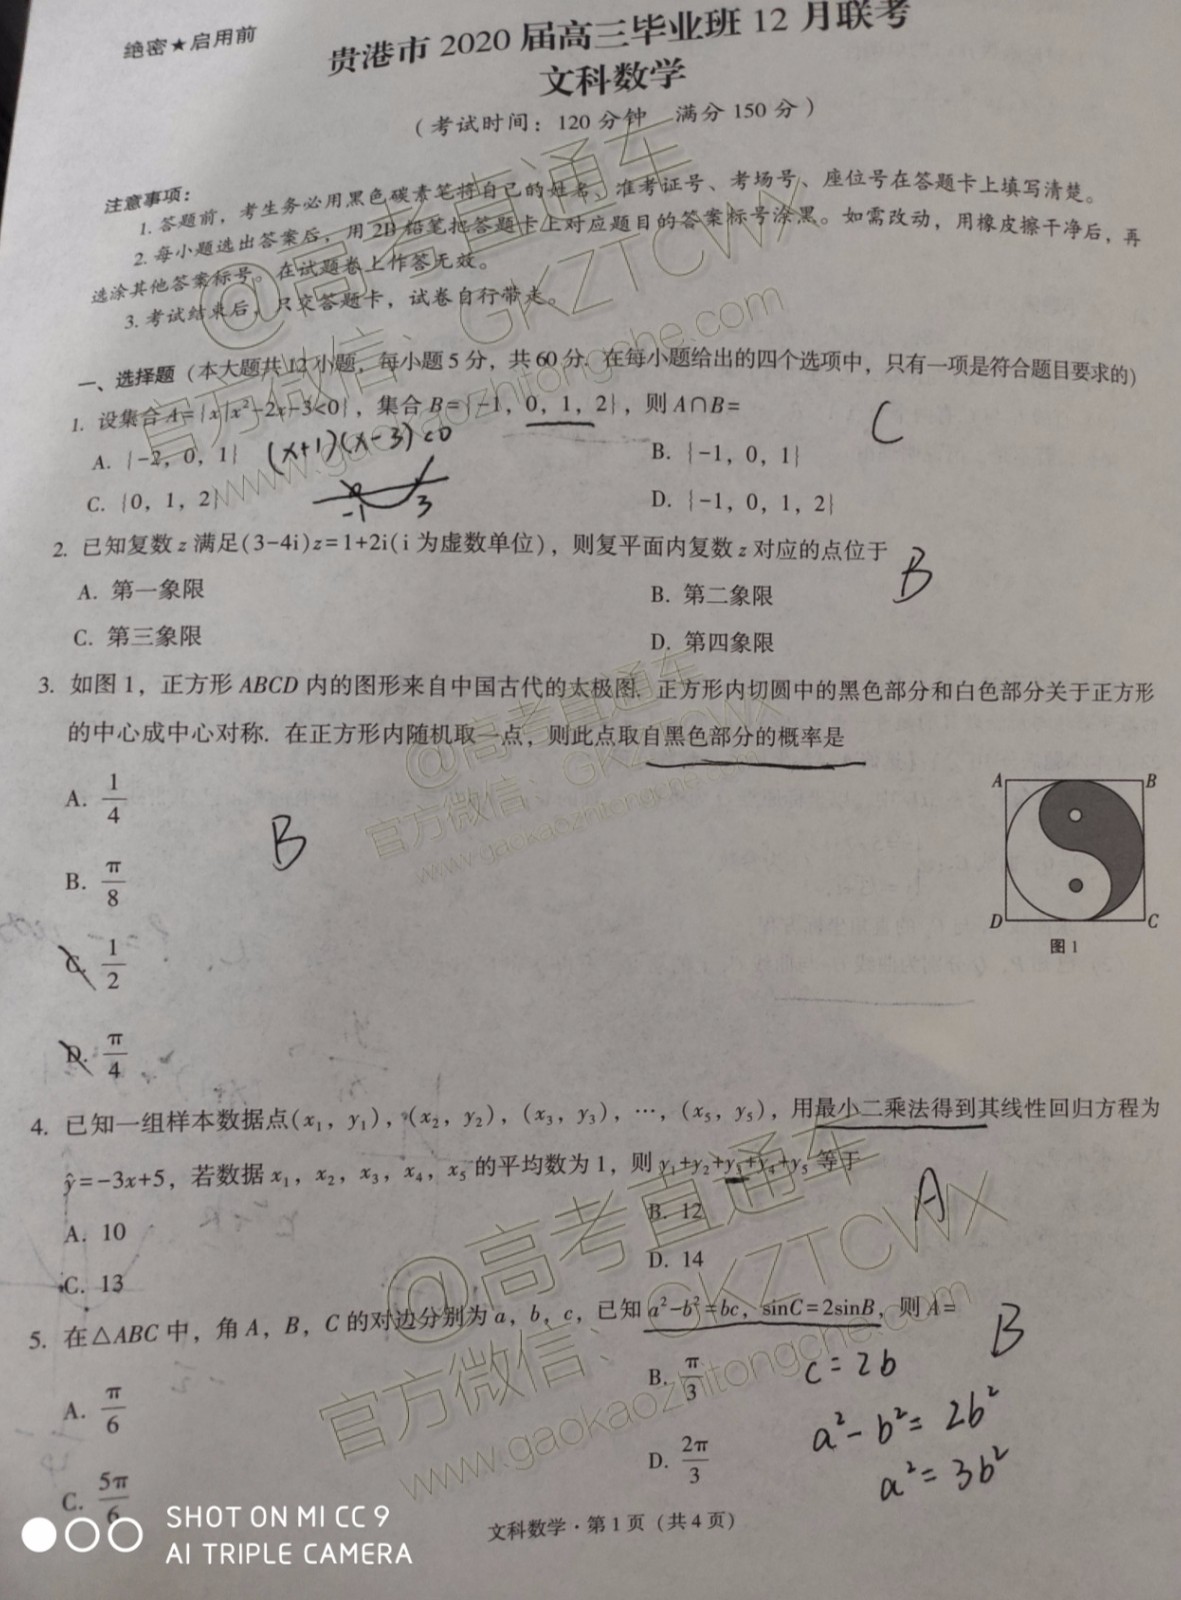 绝密★启用前
贵港市 2020 届高三毕业班 12 月联考
文科数学
(考试时间：120 分钟 满分 150 分)
注意事项：
1. 答题前，考生务必用黑色碳素笔将自己的姓名、准考证号、考场号、座位号在答题卡上填写清楚。
2. 每小题选出答案后，用 2B 铅笔把答题卡上对应题目的答案标号涂黑。如需改动，用橡皮擦干净后，再
选涂其他答案标号。在试题卷上作答无效。
3. 考试结束后，只交答题卡，试卷自行带走。
一、选择题 (本大题共 12 小题，每小题 5 分，共 60 分. 在每小题给出的四个选项中，只有一项是符合题目要求的)
1. 设集合 A={x|x²-2x-3<0}，集合 B={-1，0，1，2}，则 A∩B=
C
A. {-2，0，1}
(x+1)(x-3)<0
B. {-1，0，1}
C. {0，1，2}
-1 3
D. {-1，0，1，2}
2. 已知复数 z 满足(3-4i)z=1+2i(i 为虚数单位)，则复平面内复数 z 对应的点位于
B
A. 第一象限
B. 第二象限
C. 第三象限
D. 第四象限
3. 如图 1，正方形 ABCD 内的图形来自中国古代的太极图. 正方形内切圆中的黑色部分和白色部分关于正方形
的中心成中心对称. 在正方形内随机取一点，则此点取自黑色部分的概率是
A. 1/4
B
B. π/8
C. 1/2
D. π/4
A B
D C
图 1
4. 已知一组样本数据点(x₁，y₁)，(x₂，y₂)，(x₃，y₃)，…，(x₅，y₅)，用最小二乘法得到其线性回归方程为
ŷ=-3x+5，若数据 x₁，x₂，x₃，x₄，x₅ 的平均数为 1，则 y₁+y₂+y₃+y₄+y₅ 等于
A
A. 10
B. 12
C. 13
D. 14
5. 在△ABC 中，角 A，B，C 的对边分别为 a，b，c，已知 a²-b²=bc，sinC=2sinB，则 A=
B
A. π/6
B. π/3
c=2b
a²-b²=2b²
a²=3b²
C. 5π/6
D. 2π/3
文科数学·第 1 页 (共 4 页)
@高考直通车
官方微信：GKZTCWX
www.gaokaozhitongche.com
@高考直通车
官方微信：GKZTCWX
www.gaokaozhitongche.com
@高考直通车
官方微信：GKZTCWX
www.gaokaozhitongche.com
SHOT ON MI CC 9
AI TRIPLE CAMERA